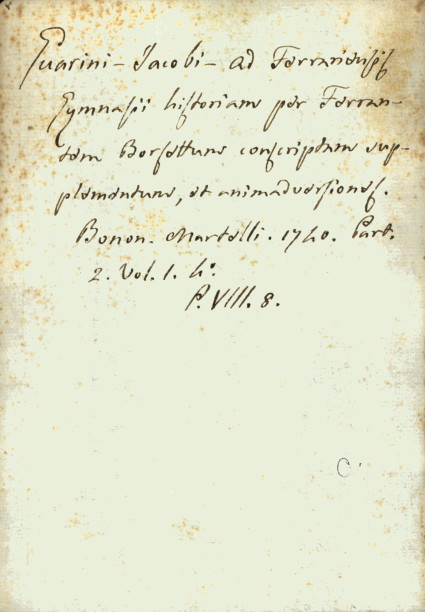 Guarini - Jacobi - ad Ferrariensis
Gymnasii historiam per Ferran-
tem Borsettum conscriptam sup-
plementum, et animadversiones.
Bonon. Martelli. 1740. Part.
2. Vol. 1. 4°.
P. VIII. 8.
C.